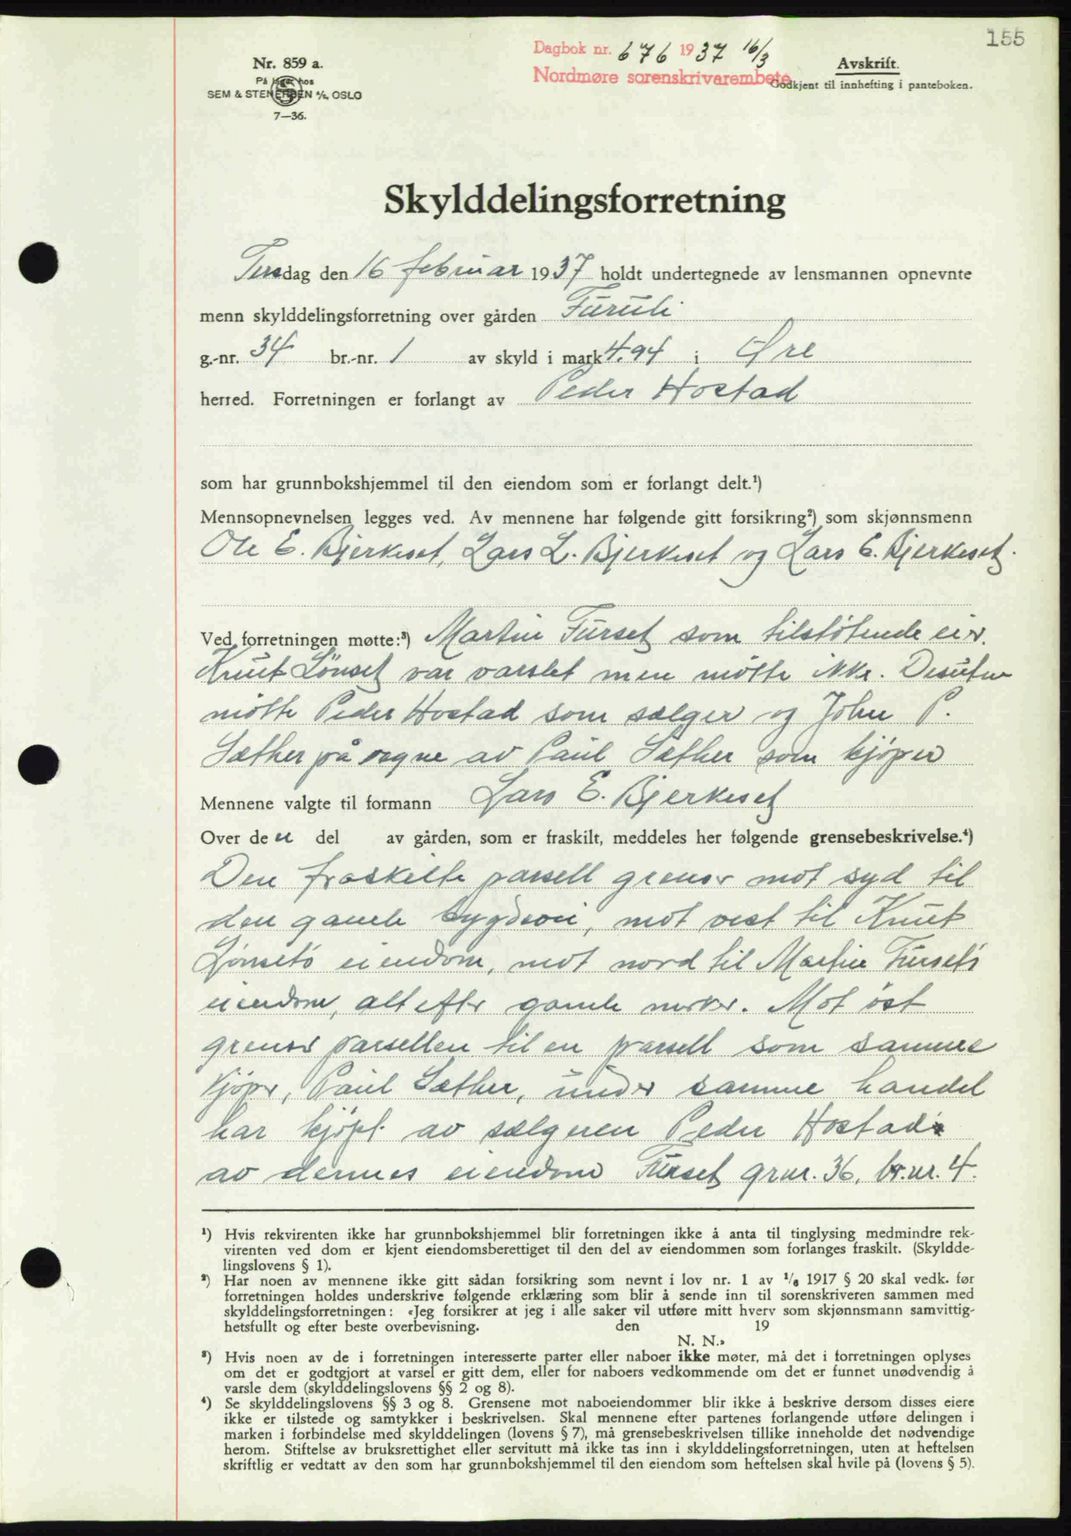 155
Dagbok nr. 676 1937 16/3
Nordmøre sorenskrivarembete
Nr. 859 a.
På lager hos
SEM & STENERSEN A/S, OSLO
7—36.
Avskrift.
Godkjent til innhefting i panteboken.
Skylddelingsforretning
Tirsdag den 16 februar 1937 holdt undertegnede av lensmannen opnevnte
menn skylddelingsforretning over gården Furuli
g.-nr. 34 br.-nr. 1 av skyld i mark 4.94 i Øre
herred. Forretningen er forlangt av Peder Hostad
som har grunnbokshjemmel til den eiendom som er forlangt delt.¹)
Mennsopnevnelsen legges ved. Av mennene har følgende gitt forsikring²) som skjønnsmenn
Ole E. Bjerkeset, Lars L. Bjerkeset og Lars E. Bjerkeset.
Ved forretningen møtte:³) Martin Furset som tilstötende eier.
Knut Lönset var varslet men mötte ikke. Desuten
mötte Peder Hostad som sælger og John P.
Sæther på vegne av Paul Sæther som kjöper
Mennene valgte til formann Lars E. Bjerkeset
Over den del av gården, som er fraskilt, meddeles her følgende grensebeskrivelse.⁴)
Den fraskilte parsell grenser mot syd til
den gamle bygdevei, mot vest til Knut
Lönsets eiendom, mot nord til Martin Fursets
eiendom, alt efter gamle merker. Mot öst
grenser parsellen til en parsell som samme
kjöper, Paul Sæther, under samme handel
har kjöpt av sælgeren Peder Hostad
av dennes eiendom Furset grnr. 36, br.nr. 4.
¹) Hvis rekvirenten ikke har grunnbokshjemmel blir forretningen ikke å anta til tinglysing medmindre rek-
virenten ved dom er kjent eiendomsberettiget til den del av eiendommen som forlanges fraskilt. (Skyldde-
lingslovens § 1).
²) Har noen av mennene ikke gitt sådan forsikring som nevnt i lov nr. 1 av 1/6 1917 § 20 skal vedk. før
forretningen holdes underskrive følgende erklæring som blir å sende inn til sorenskriveren sammen med
skylddelingsforretningen: «Jeg forsikrer at jeg i alle saker vil utføre mitt hverv som skjønnsmann samvittig-
hetsfullt og efter beste overbevisning. den 19
N. N.»
³) Hvis noen av de i forretningen interesserte parter eller naboer ikke møter, må det i forretningen oplyses
om det er godtgjort at varsel er gitt dem, eller for naboers vedkommende om det er funnet unødvendig å
varsle dem (skylddelingslovens §§ 2 og 8).
⁴) Se skylddelingslovens §§ 3 og 8. Grensene mot naboeiendommer blir ikke å beskrive dersom disses eiere
ikke er tilstede og samtykker i beskrivelsen. Skal mennene efter partenes forlangende utføre delingen i
marken i forbindelse med skylddelingen (lovens § 7), må grensebeskrivelsen tillike inneholde det nødvendige
herom. Stiftelse av bruksrettighet eller servitutt må ikke tas inn i skylddelingsforretningen, uten at heftelsen
skriftlig er vedtatt av den som har grunnbokshjemmel til den eiendom som heftelsen skal hvile på (lovens § 5).